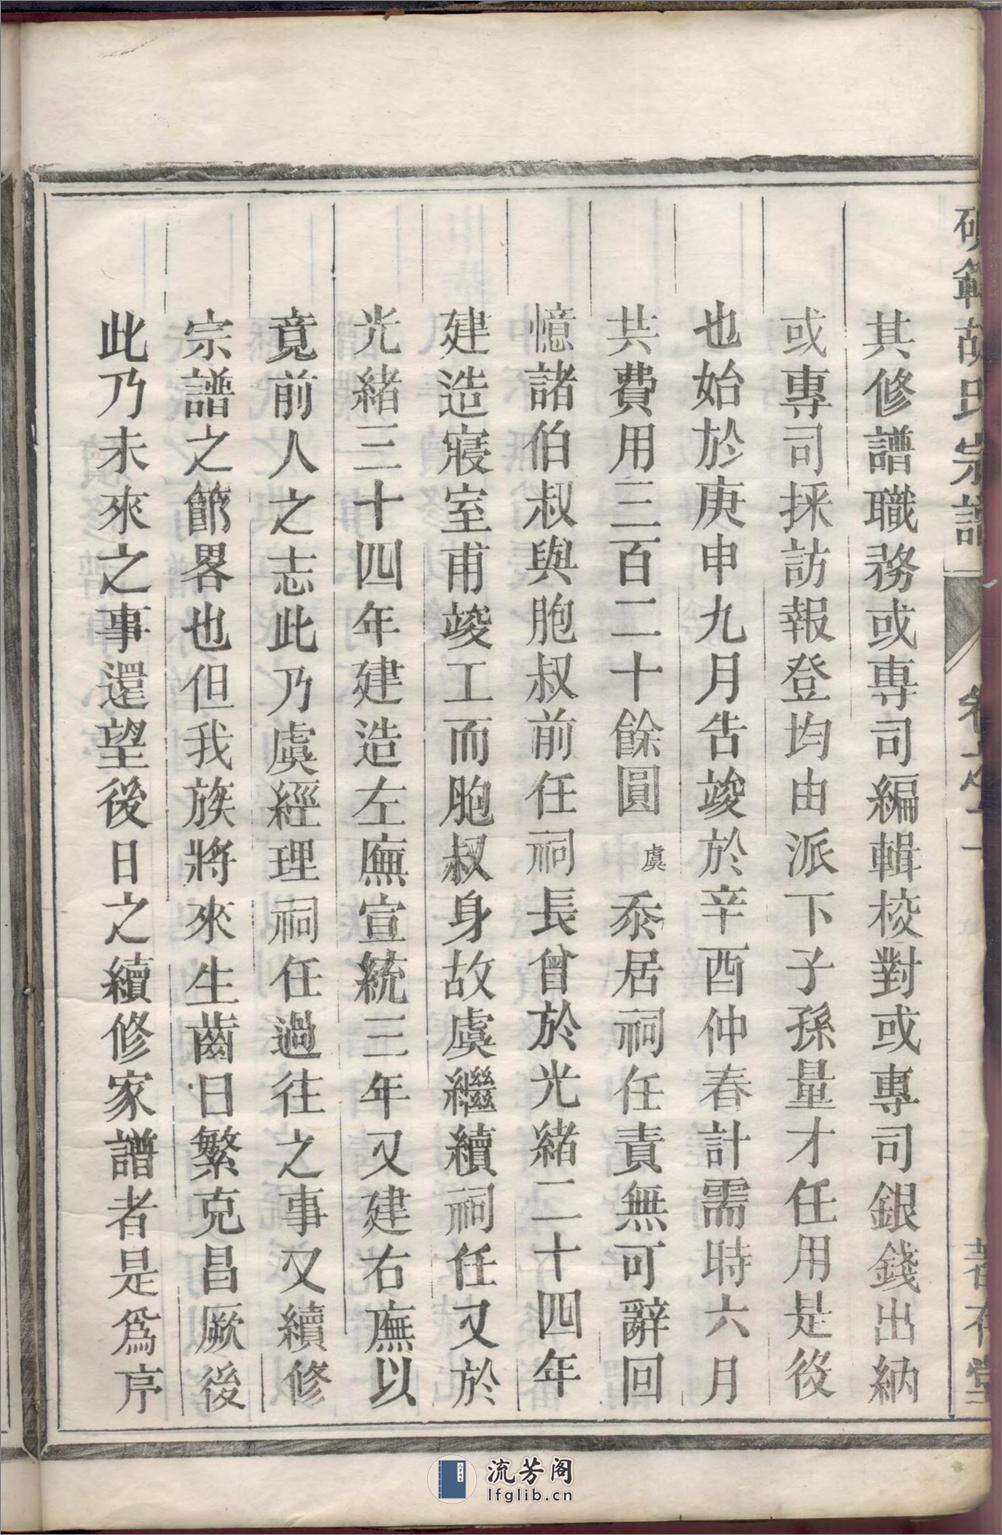 胡氏宗譜
其修譜職務或專司編輯校對或專司銀錢出納
或專司採訪報登均由派下子孫量才任用是役
也始於庚申九月告竣於辛酉仲春計需時六月
共費用三百二十餘圓虞忝居祠任責無可辭回
憶諸伯叔與胞叔前任祠長曾於光緒二十四年
建造寢室甫竣工而胞叔身故虞繼續祠任又於
光緒三十四年建造左廡宣統三年又建右廡以
竟前人之志此乃虞經理祠任過往之事又續修
宗譜之節畧也但我族將來生齒日繁克昌厥後
此乃未來之事還望後日之續修家譜者是爲序
流芳阁
lfglib.cn